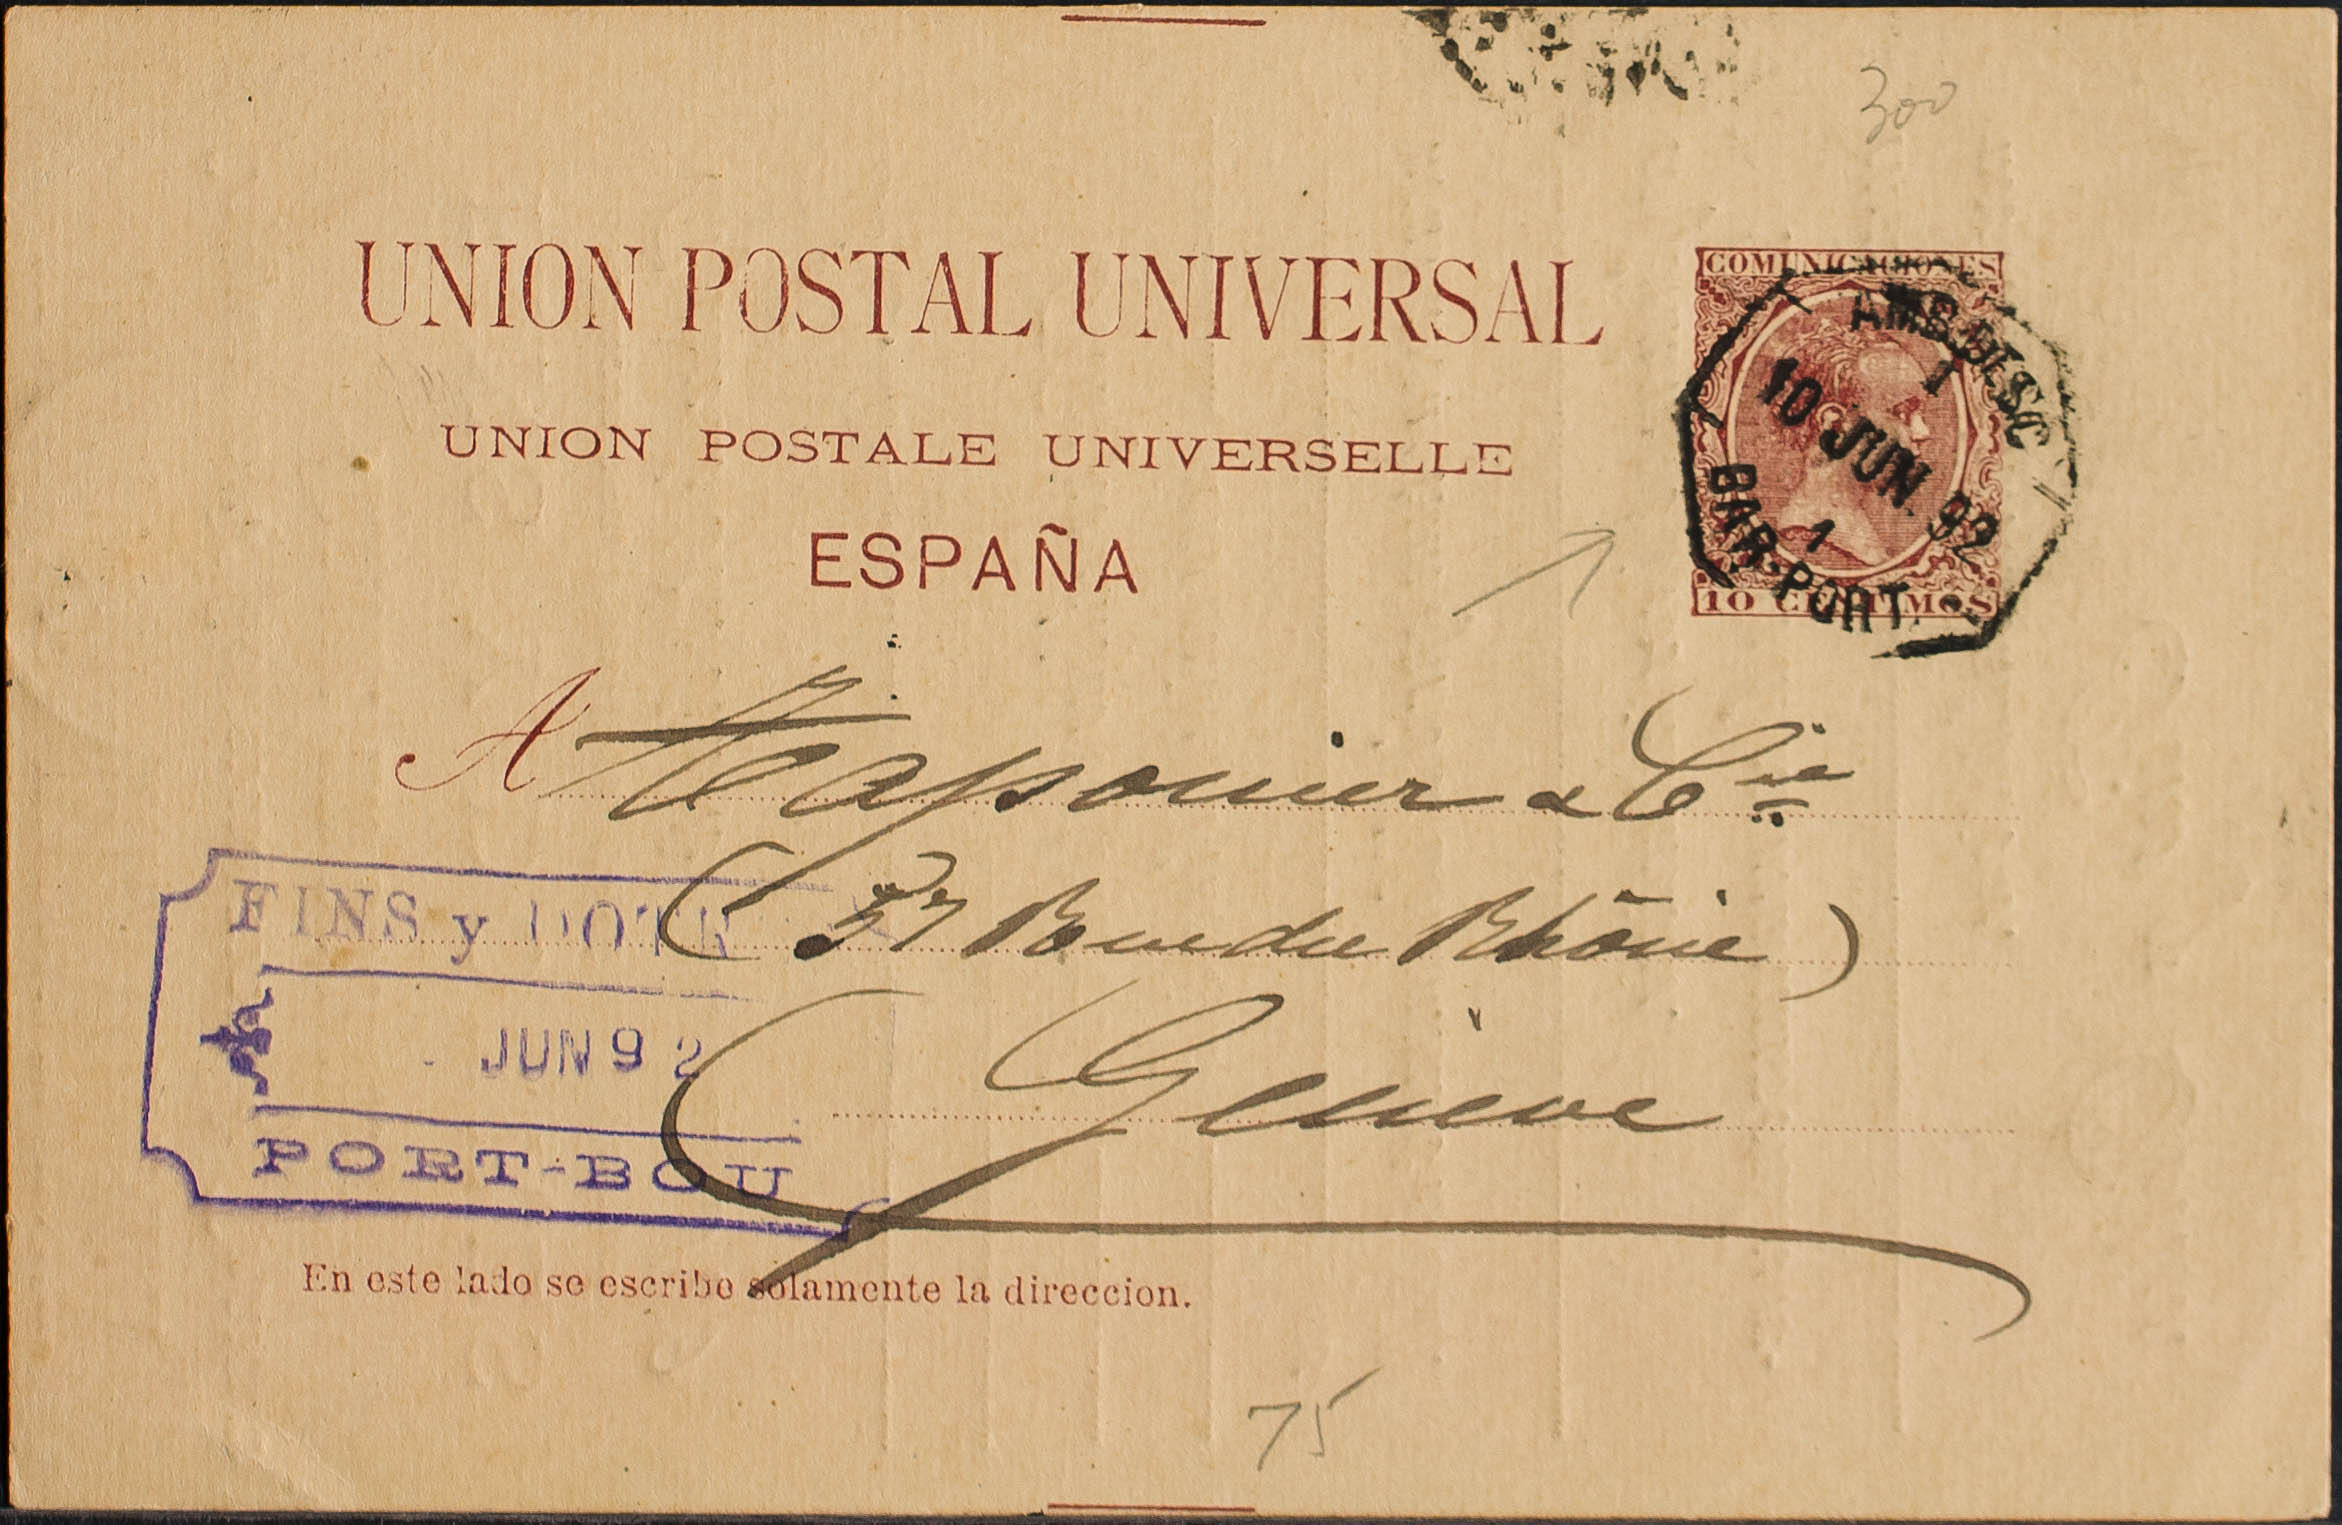 300
UNION POSTAL UNIVERSAL
UNION POSTALE UNIVERSELLE
ESPAÑA
COMUNICACIONES
AMB. DESC
1
10 JUN. 92
1
BAR-PORT.
10 CENTIMOS
A Taponier & Cie
(37 Rue du Rhône)
Genève
FINS y
JUN 92
PORT-BOU
En este lado se escribe solamente la direccion.
75